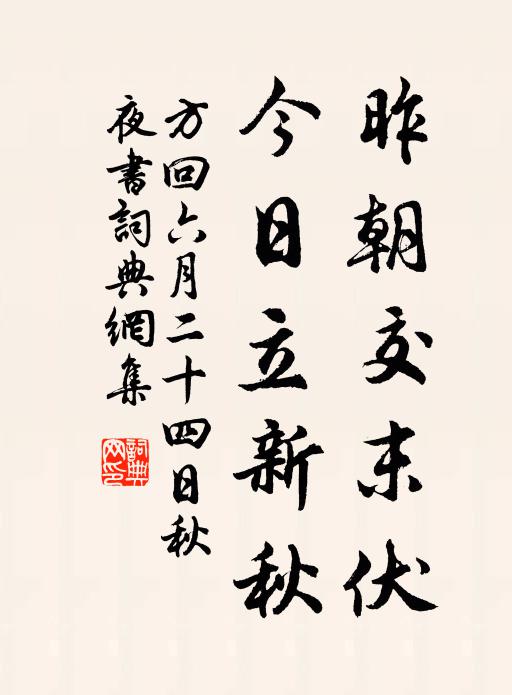 昨朝交末伏
今日立新秋
方回六月二十四日秋
夜書詞典網集
詞典網印